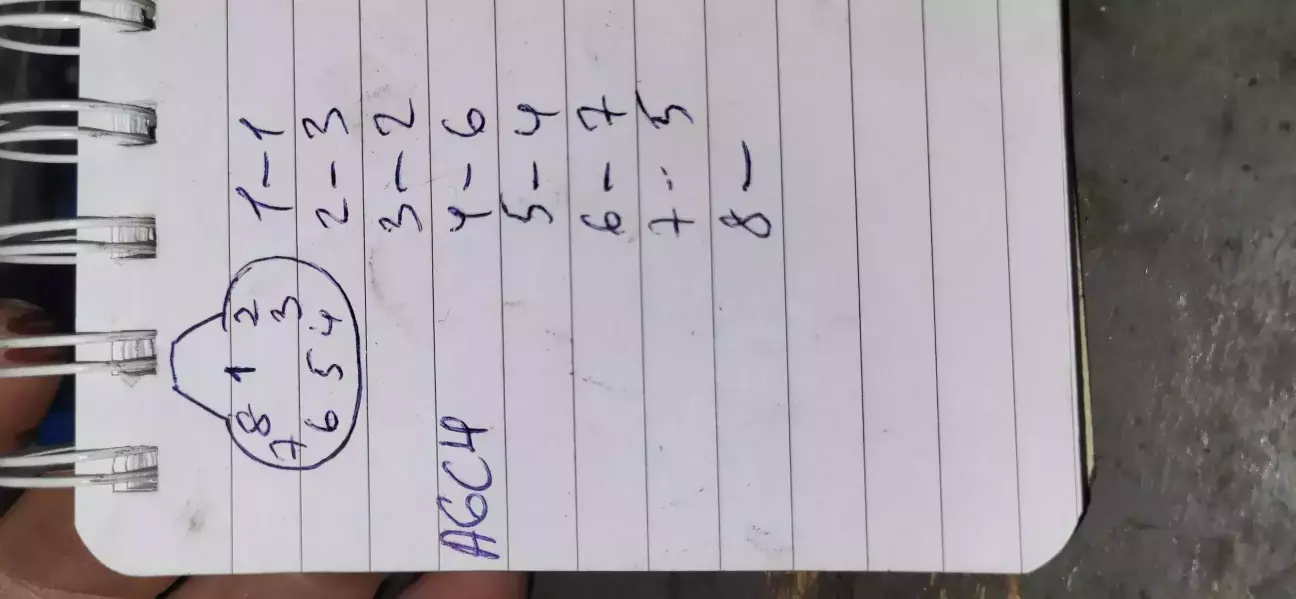 8 1 2
7 3
6 5 4
AGCH
1-1
2-3
3-2
4-6
5-4
6-7
7-5
8-